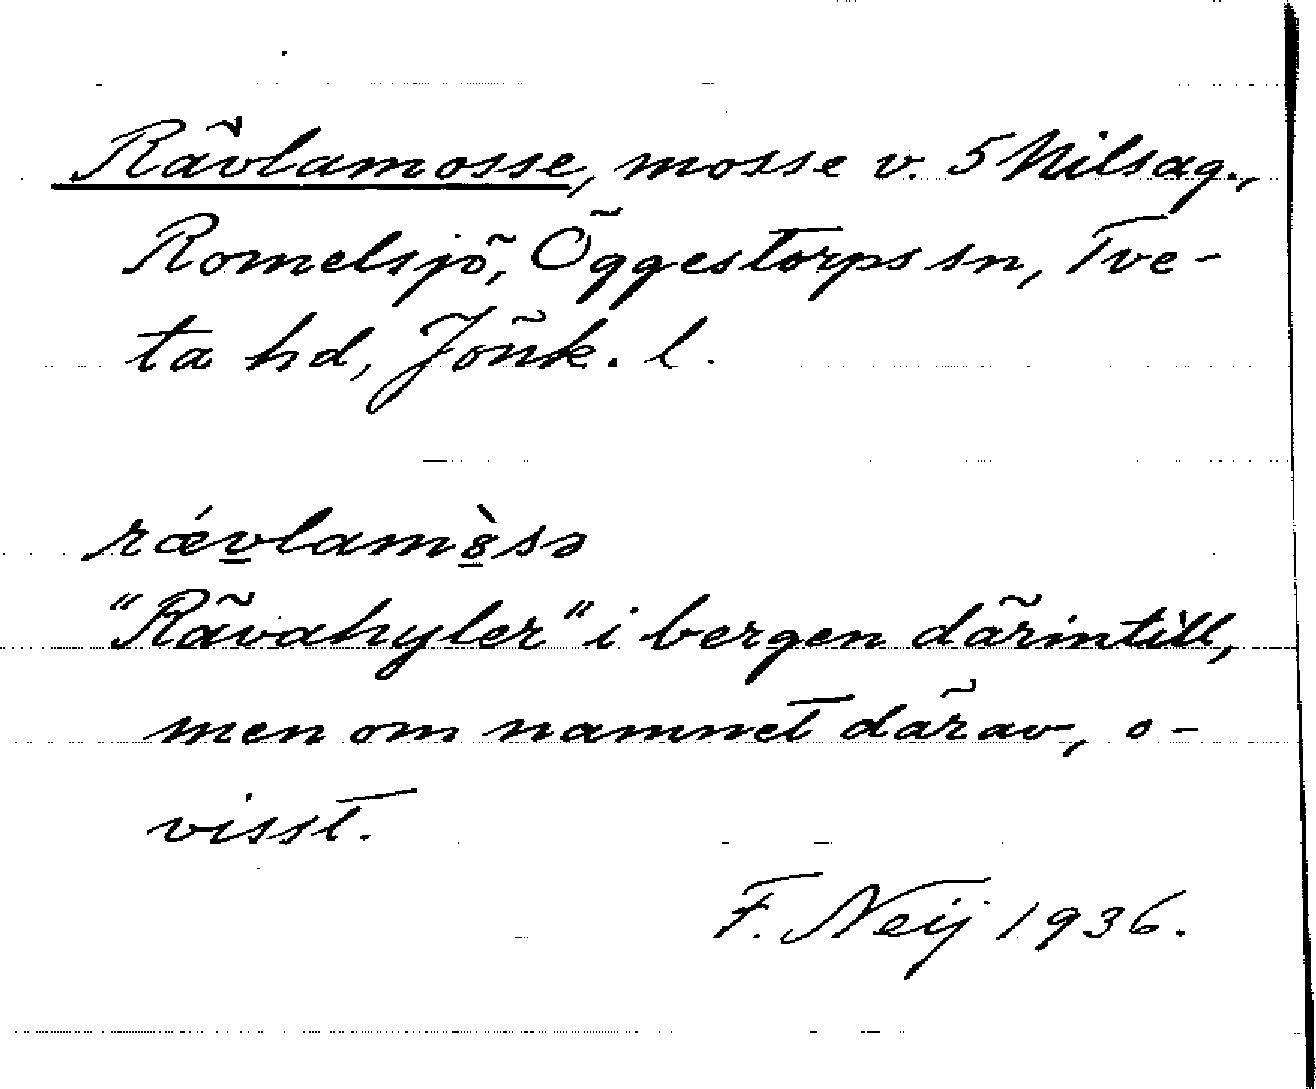 Rävlamosse, mosse v. 5 Nilsag.,
Romelsjö, Öggestorps sn, Tve-
ta hd, Jönk. l.
rǽvlamòsə
"Rävahyler" i bergen därintill,
men om namnet därav, o-
visst.
F. Neij 1936.